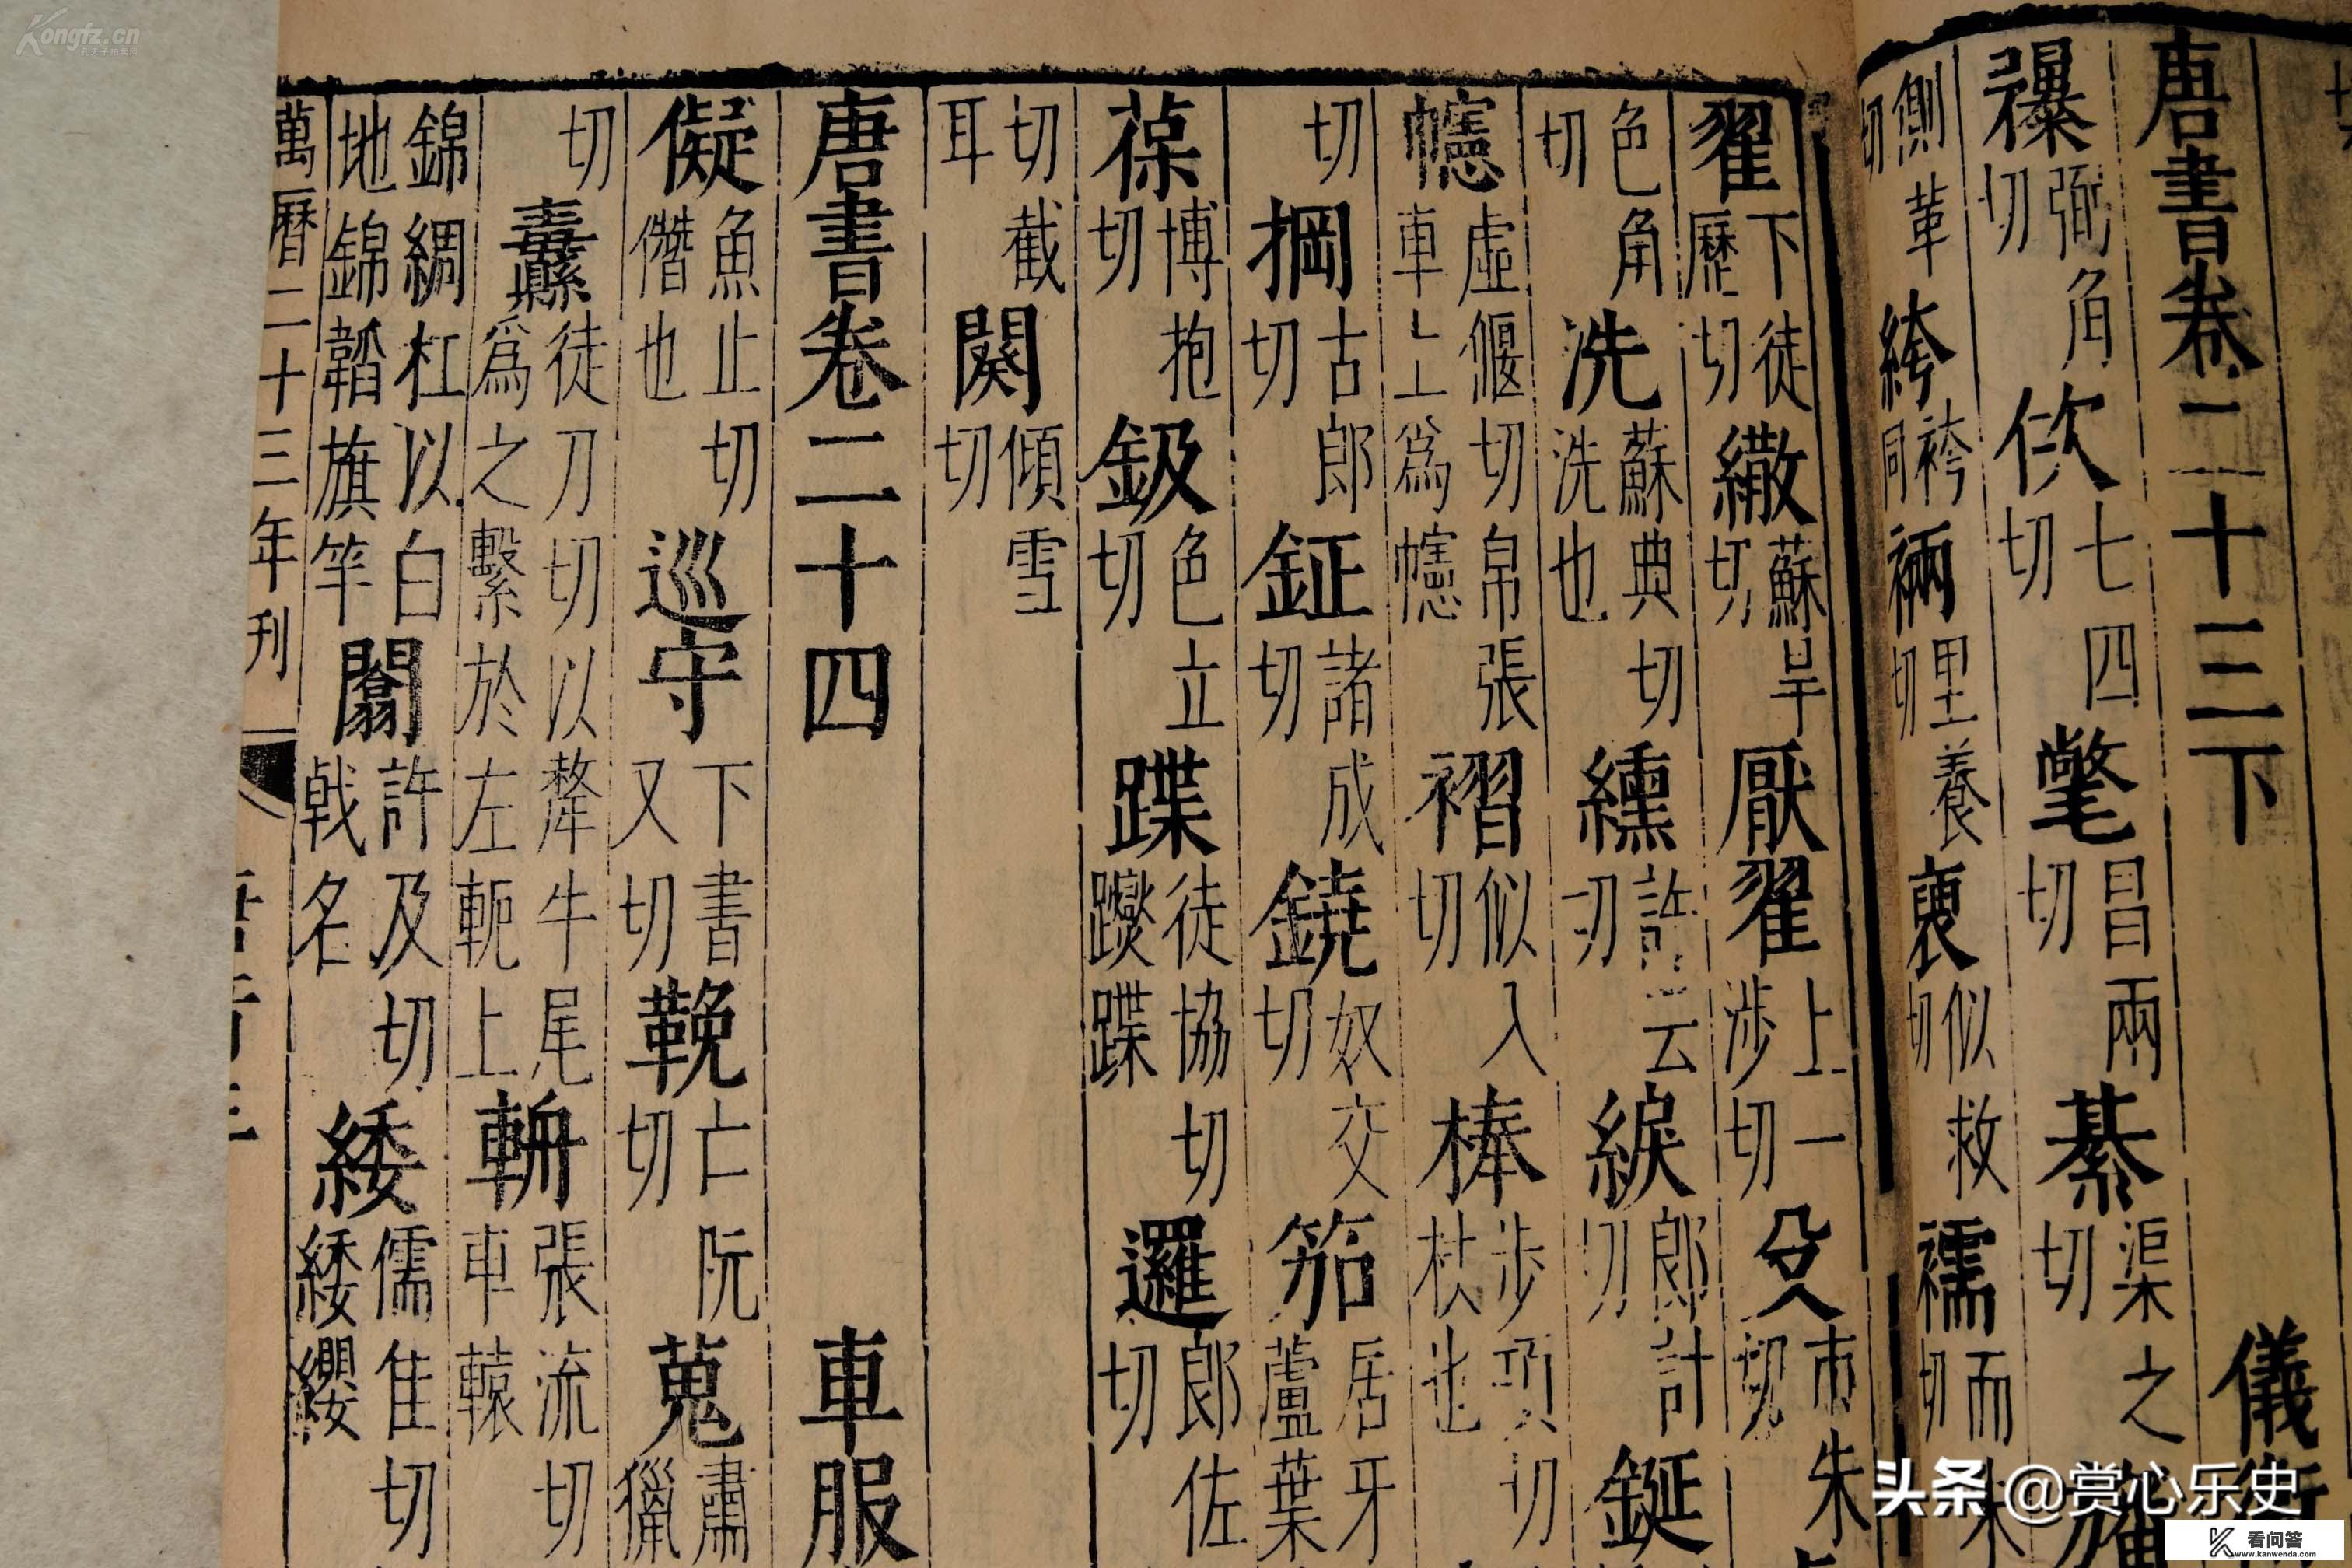 唐書卷二十三下 儀衛
襮 弼角切 佽 七四切 氅 昌兩切 綦 渠之切
側革切 絝 袴同 裲 里養切 褎 似救切 襦 而朱切
翟 下徒歷切 繖 蘇旱切 厭翟 上一涉切 殳 市朱切
色角切 洗 蘇典切洗也 纁 許云切 綟 郎計切 鋋
幰 虛偃切帛張車上為幰 褶 似入切 棒 步項切杖也
切 掆 古郎切 鉦 諸成切 鐃 奴交切 笳 居牙蘆葉
葆 博抱切 鈒 色立切 蹀 徒協切躞蹀 邏 郎佐切
切截耳 闋 傾雪切
唐書卷二十四 車服
儗 魚止切僭也 巡守 下書又切 鞔 亡阮切 蒐 肅獵
切 纛 徒刀切以犛牛尾為之繫於左軛上 輈 張流切車轅
錦綢杠以白地錦韜旗竿 闟 許及切戟名 緌 儒隹切緌纓
萬曆二十三年刊
Kongfz.cn
头条 @赏心乐史
看问答
www.kanwenda.com